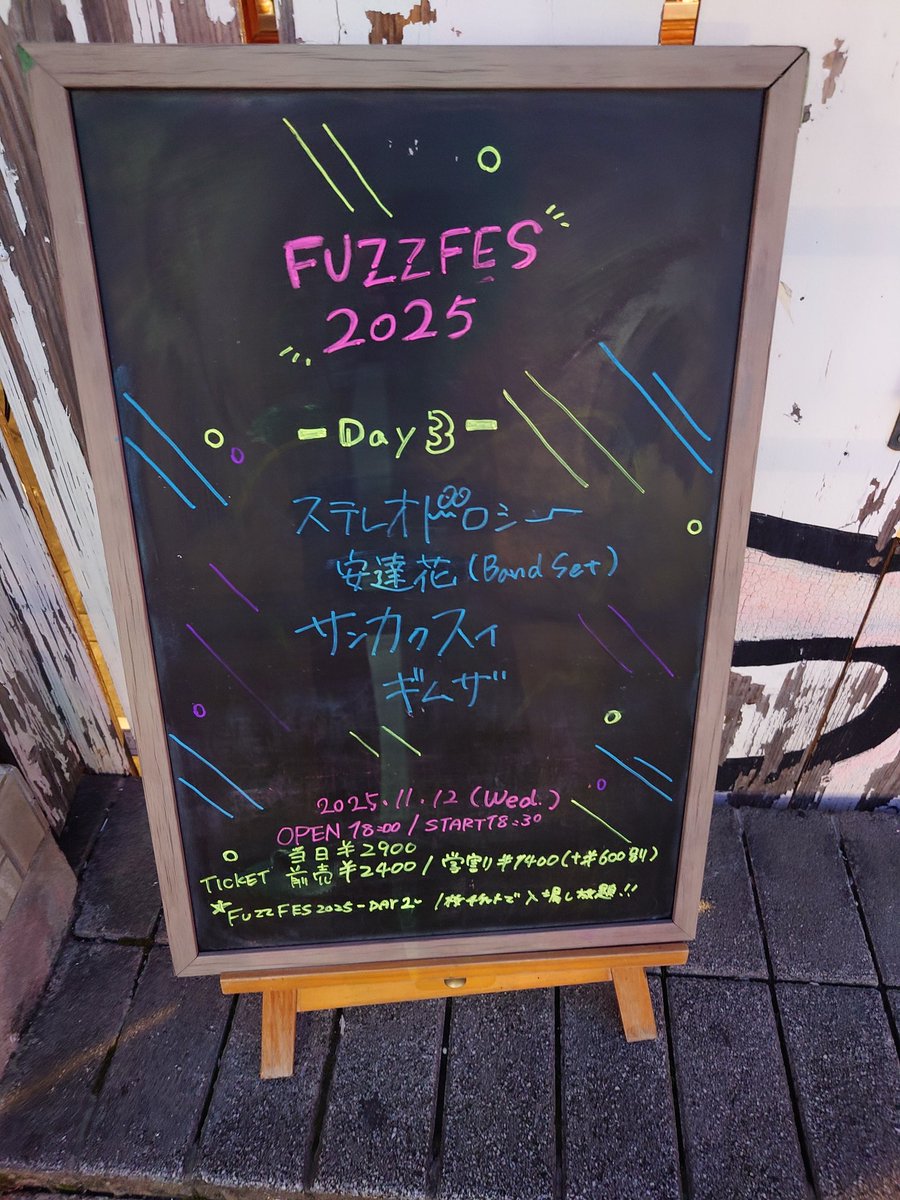 FUZZFES
2025
-Day 3-
ステレオドロシー
安達花(Band Set)
サンカクスイ
ギムザ
2025.11.12(Wed.)
OPEN 18:00/START18:30
当日¥2900
TICKET 前売¥2400/学割り¥1400(+¥600別)
★FUZZFES2025-DAY2 入場し放題!!